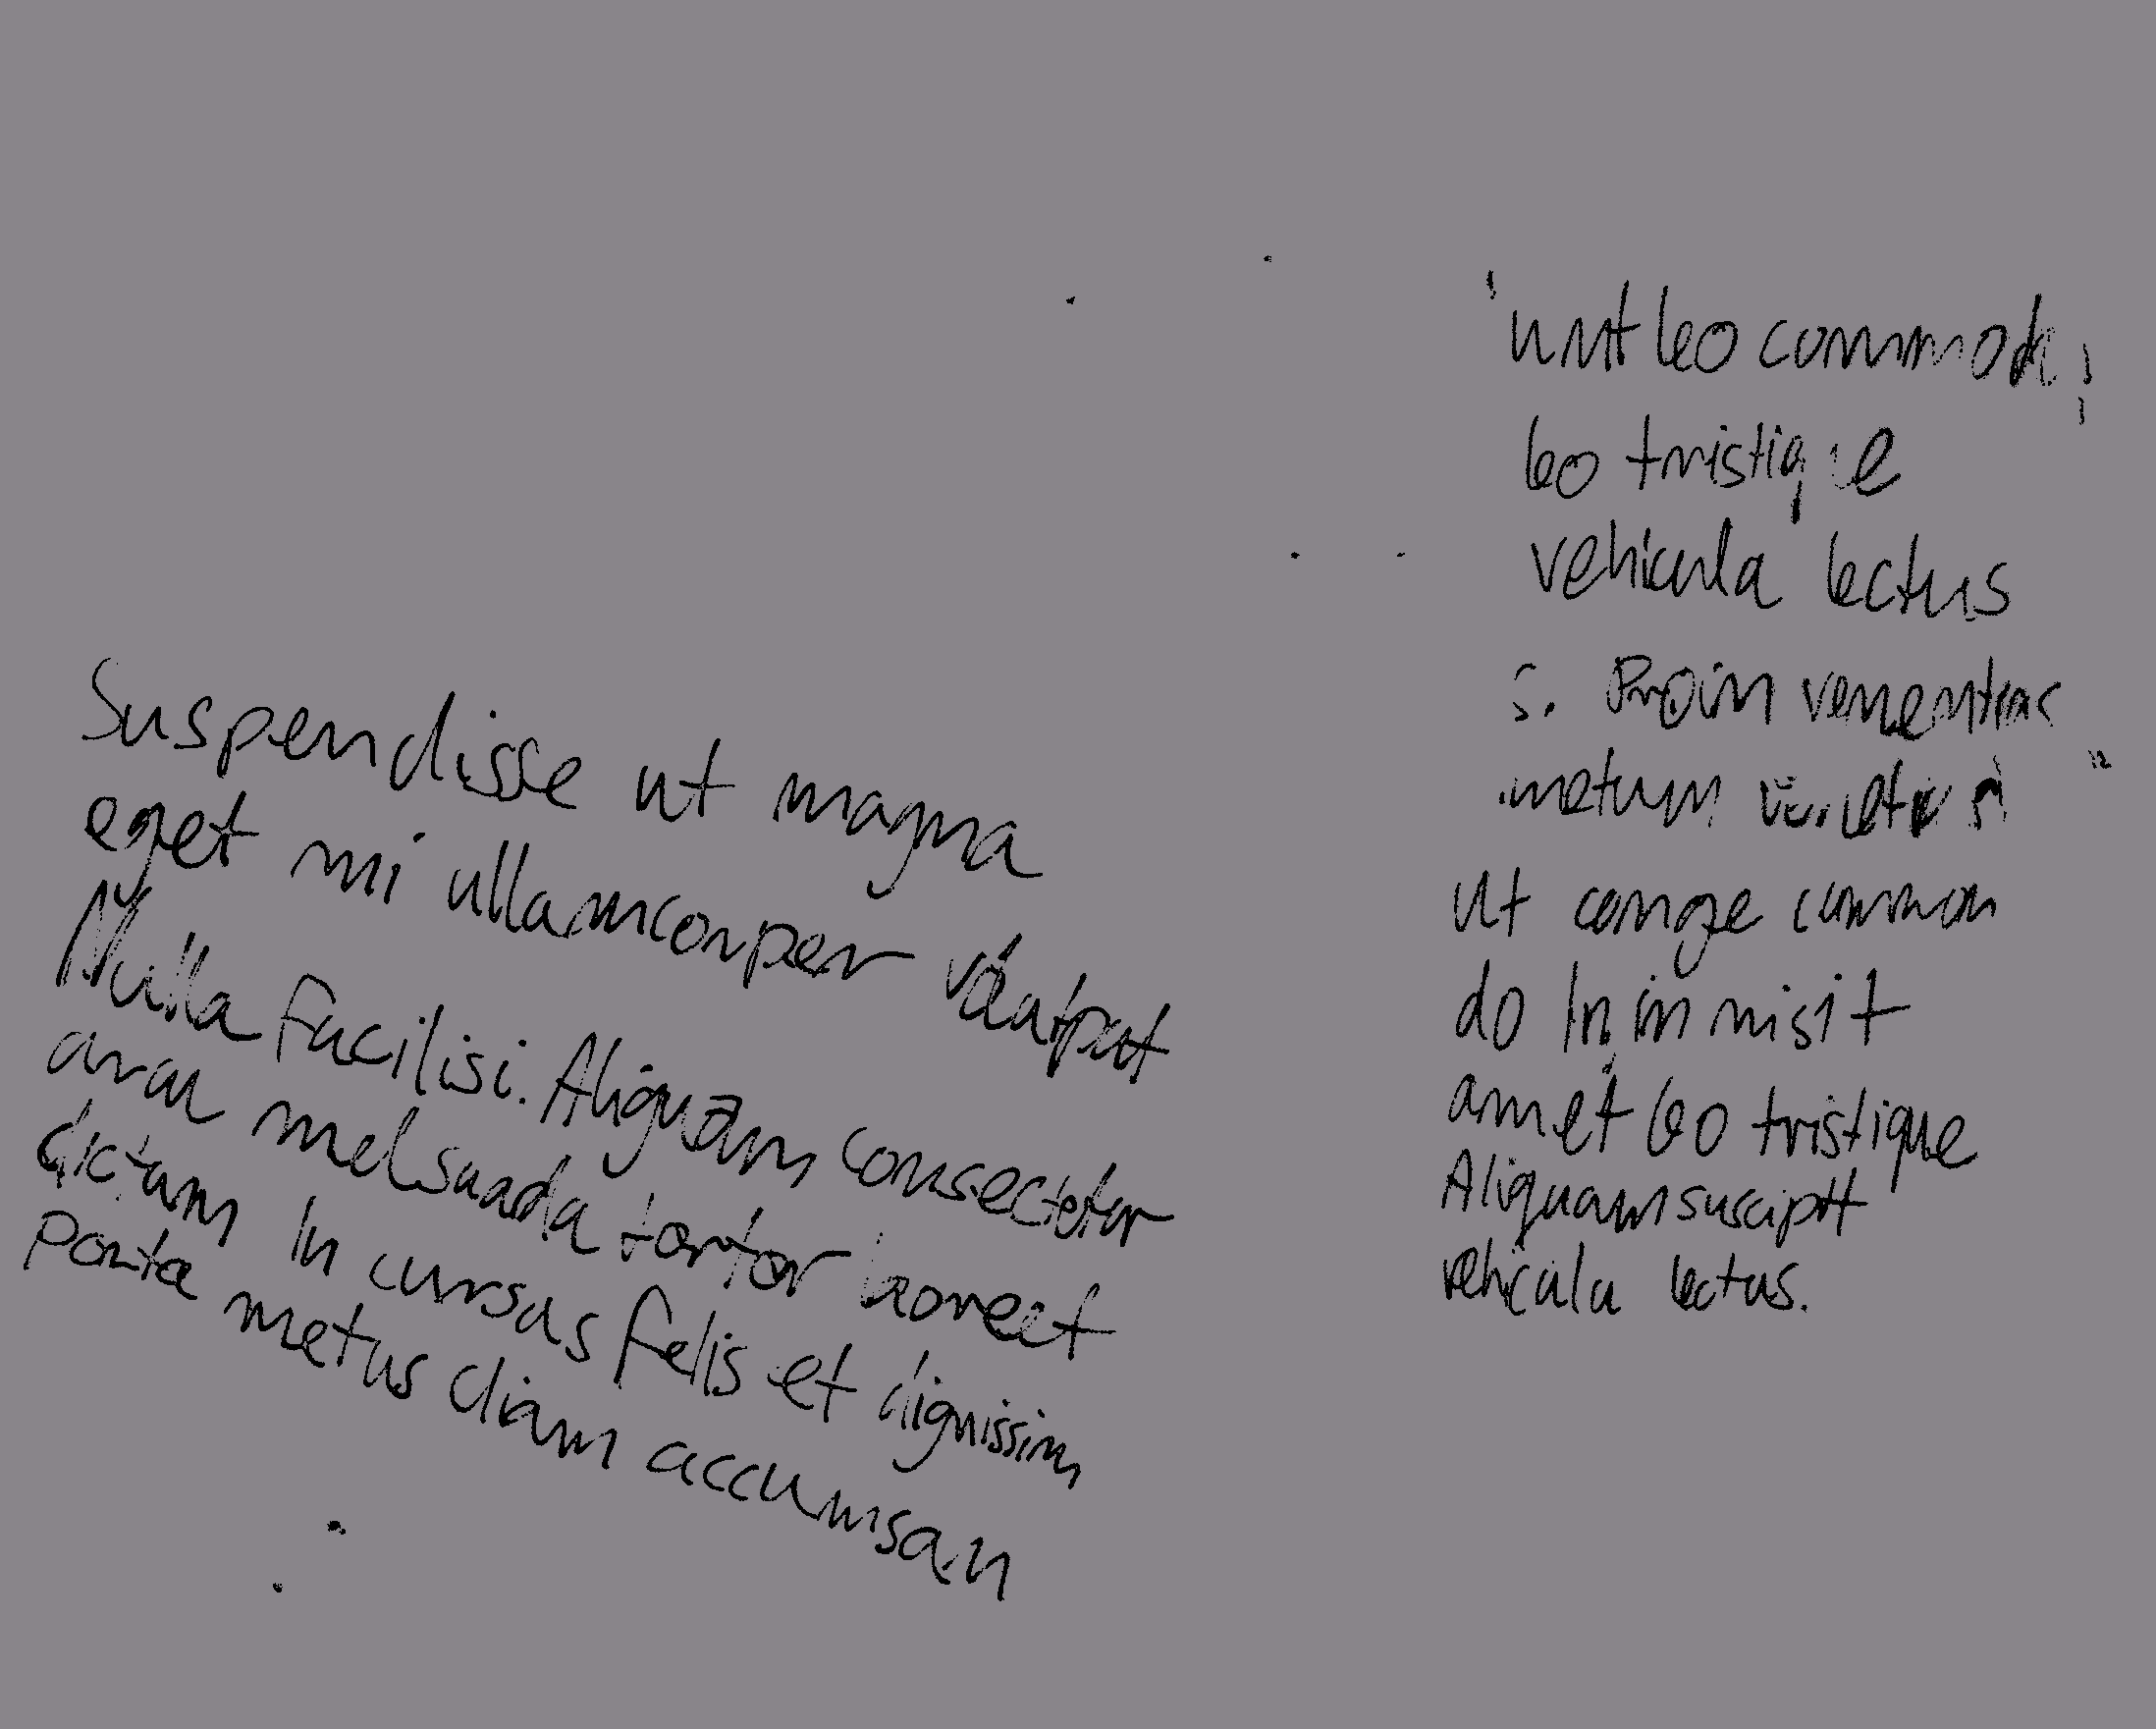 Suspendisse ut magna
eget mi ullamcorper volutpat
Nulla facilisi. Aliquam consectetur
arcu melsuada tortor laoreet
dictum In cursus felis et dignissim
Porta metus diam accumsan
unt leo commod
leo tristique
vehicula lectus
s. Proin
metum
ut conge common
do In in nisi t
amet leo tristique
Aliquam suscipit
vehicula lectus.